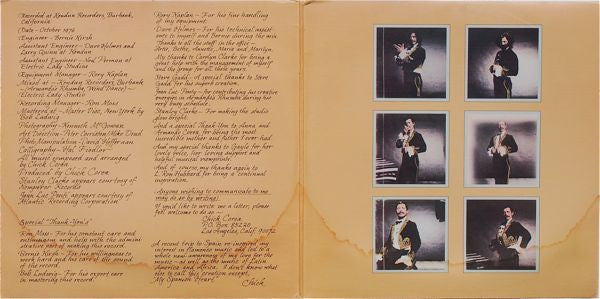 Recorded at Kendun Recorders, Burbank,
California
Date - October 1976
Engineer - Bernie Kirsh
Assistant Engineers - Dave Holmes and
Larry Quinn at Kendun
Assistant Engineer - Neal Teeman at
Electric Lady Studios
Equipment Manager - Rory Kaplan
Mixed at - Kendun Recorders, Burbank
(Armando's Rhumba, Wind Dance) -
Electric Lady Studio
Recording Manager - Ron Moss
Mastered at - Master Disc, New York by
Bob Ludwig
Photography - Kenneth McGowan
Art Direction - Peter Christie/Mike Doud
Calligraphy -
All music composed and arranged
by Chick Corea
Produced by Chick Corea
Stanley Clarke appears courtesy of
Nemperor Records
Jean Luc Ponty appears courtesy of
Atlantic Recording Corporation
Special "Thank-You's"
Ron Moss - For his constant care and
enthusiasm and help with the admini-
strative part of making this record.
Bernie Kirsh - For his willingness to
work hard and his care of the sound
of the record.
Bob Ludwig - For his expert care
in mastering this record.
Rory Kaplan - For his fine handling
of my equipment.
Dave Holmes - For his technical assist-
ance to myself and Bernie during the mix.
Thanks to all the staff in the office -
Bette, Annette, Maria and Marilyn.
My thanks to Carolyn Clarke for being a
great help with the management of myself
and the group for all these years.
Steve Gadd - A special thanks to Steve
Gadd for his superb creation.
Jean Luc Ponty - for contributing his creative
energies in Armando's Rhumba during his
very busy schedule.
Stanley Clarke - For making the studio
glow bright.
And a special Thank You to Anna and
Armando Corea, for being the most
incredible mother and father I've ever had.
And my special thanks to Gayle for her
lovely voice, her loving support and
helpful musical viewpoints.
And of course, my thanks again to
L. Ron Hubbard for being a continual
inspiration.
Anyone wishing to communicate to me
may do so by writing.
If you'd like to write me a letter, please
feel welcome to do so -
Chick Corea
P.O. Box 85270
Los Angeles, Calif. 90072
A recent trip to Spain re-inspired my
interest in flamenco music and led to a
whole new awareness of my love for the
music - as well as the music of Latin
America and Africa. I don't know what
else to call this creation except,
My Spanish Heart.
Chick